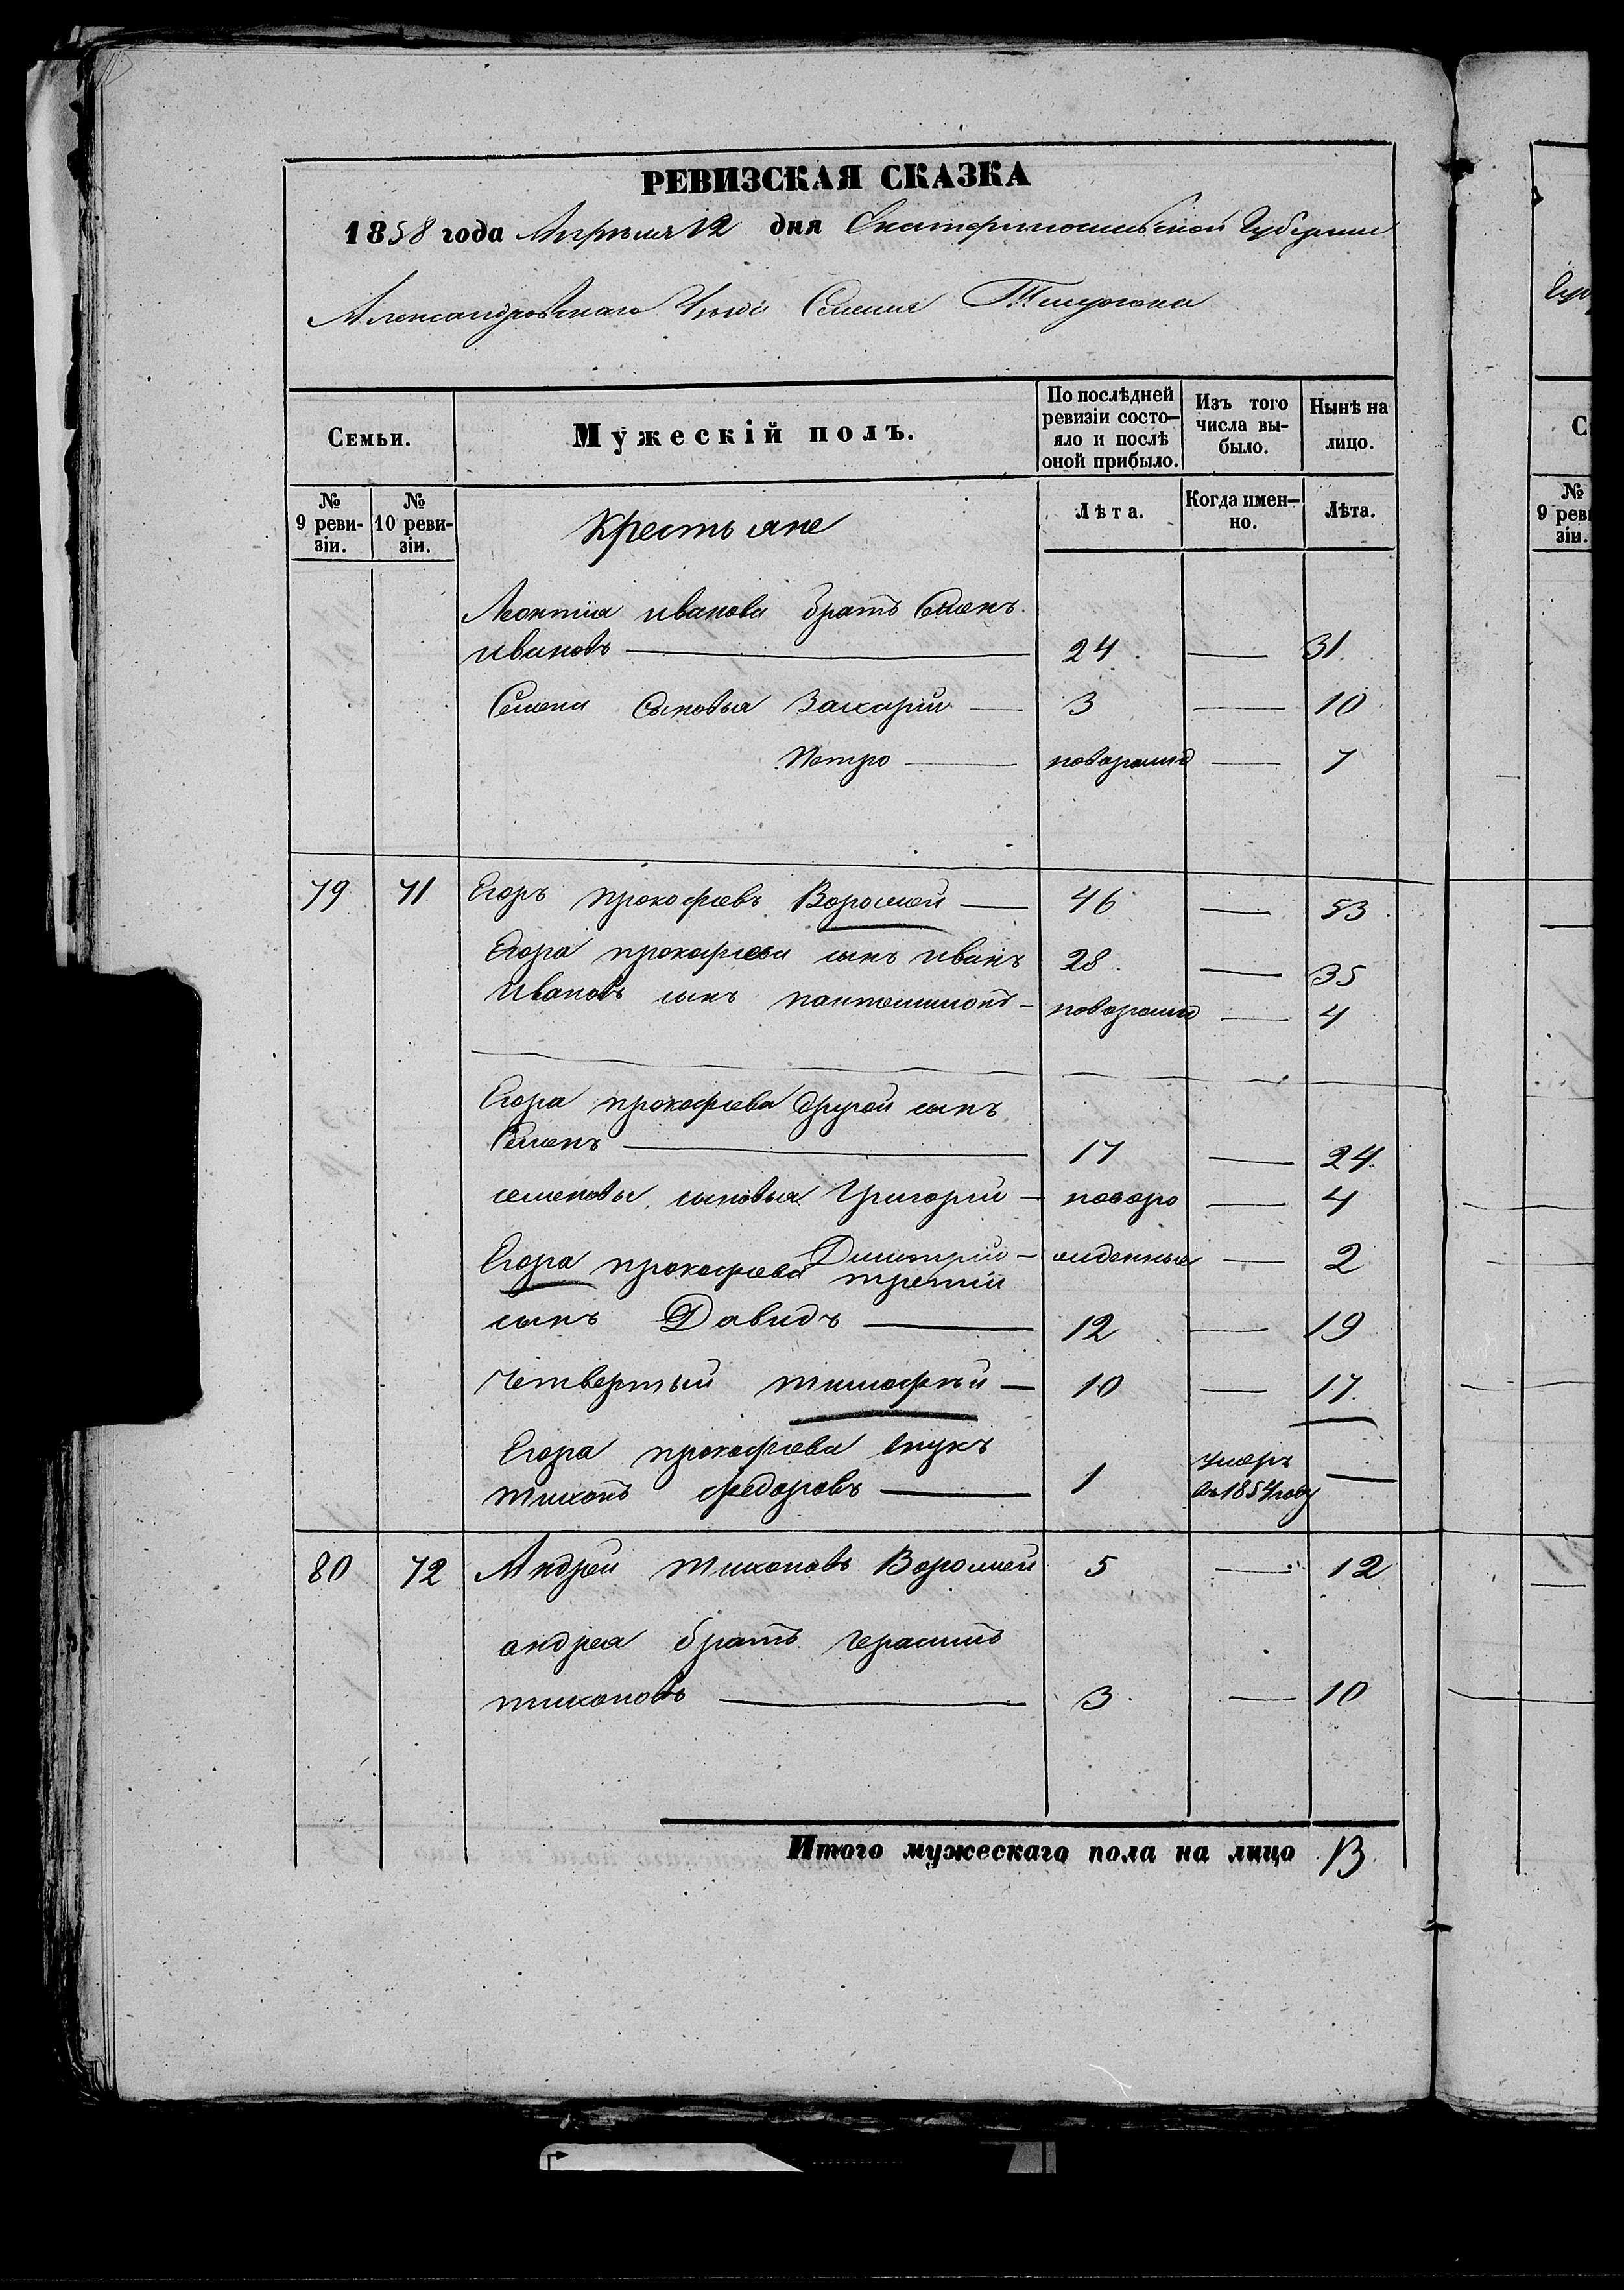 РЕВИЗСКАЯ СКАЗКА
1858 года Апреля 12 дня Екатеринославской Губернии
Александровскаго Уезда Селения
Семьи.
Мужескій полъ.
По послѣдней ревизіи состояло и послѣ оной прибыло.
Изъ того числа выбыло.
Нынѣ на лицо.
№ 9 ревизіи.
№ 10 ревизіи.
Крестьяне
Лѣта.
Когда именно.
Лѣта.
Леонтiя иванова братъ Семенъ
ивановъ — 24 — 31
Семена Сыновья Захарий — 3 — 10
Петро — новорожд — 7
79 71 Егоръ прокофьевъ Воромей — 46 — 53
Егора прокофьева сынъ иванъ 28 — 35
Ивановъ сынъ пантелимонъ — новорожд — 4
Егора прокофьева другой сынъ
Семенъ — 17 — 24
семеновы сыновья Григорий — новоро — 4
Димитрий — жденные — 2
Егора прокофьева третий
сынъ Давидъ — 12 — 19
Четвертый тимофей — 10 — 17
Егора прокофьева внукъ
тихонъ федоровъ — 1 умеръ въ 1854 году —
80 72 Андрей тихоновъ Воромей 5 — 12
андрея братъ герасимъ
тихоновъ — 3 — 10
Итого мужескаго пола на лицо 13
С
№
9 рев
зіи.